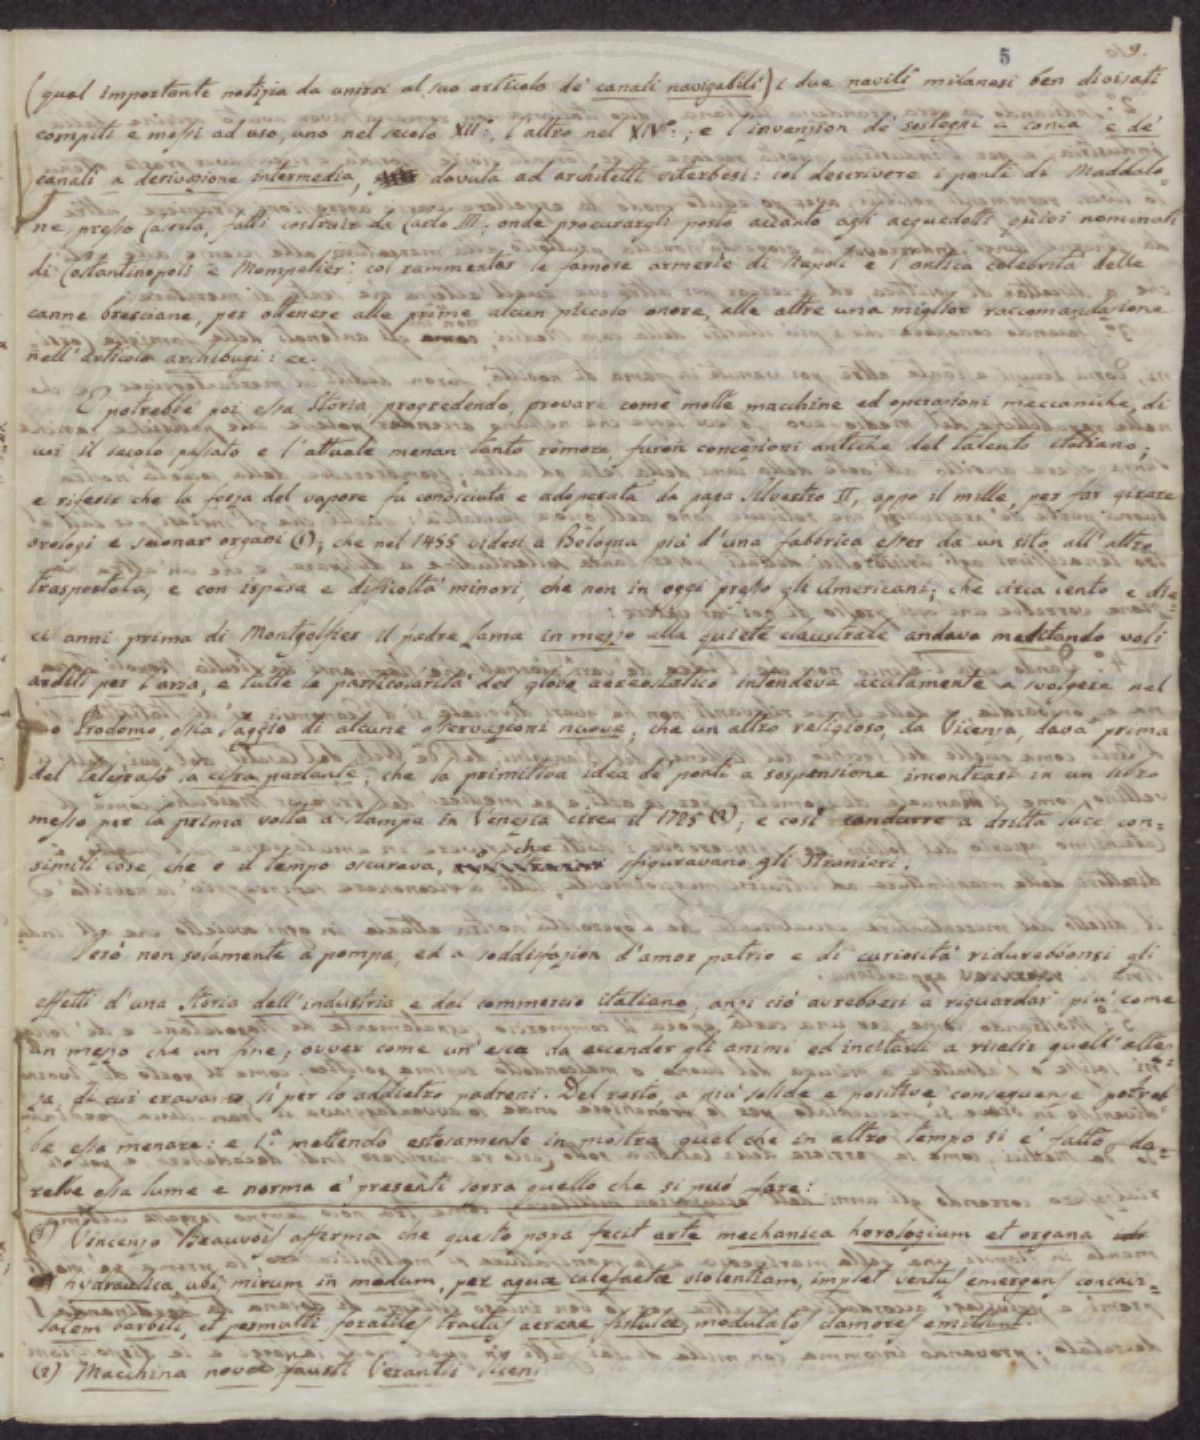 5 9.
(qual importante notizia da unirsi al suo articolo de' canali navigabili) i due navili milanesi ben divisati
compiti e messi ad uso, uno nel secolo XII.º, l'altro nel XIV.º; e l'invenzion de' sostegni a conca e de'
canali a derivazione intermedia, dovuta ad architetti viterbesi: col descrivere i ponti di Maddalo-
ne presso Caserta, fatti costruir da Carlo III; onde procurargli posto accanto agli acquedotti quivi nominati
di Costantinopoli e Mompelier: col rammentar le famose armerie di Napoli e l'antica celebrità delle
canne bresciane, per ottenere alle prime alcun piccolo onore, alle altre una miglior raccomandazione
nell'articolo archibugi: ec.
E potrebbe poi essa Storia, progredendo, provare come molte macchine ed operazioni meccaniche, di
cui il secolo passato e l'attuale menan tanto romore, furon concezioni antiche del talento italiano;
e riferir che la forza del vapore fu conosciuta e adoperata da papa Silvestro II, appo il mille, per far girare
orologi e suonar organi (1); che nel 1455 videsi a Bologna più d'una fabbrica esser da un sito all'altro
trasportata, e con ispesa e difficoltà minori, che non in oggi presso gli Americani; che circa cento e die-
ci anni prima di Montgolfier il padre Lama in mezzo alla quiete claustrale andava meditando voli
arditi per l'aria, e tutte le particolarità del globo aereostatico intendeva acutamente a svolgere nel
suo Prodomo, ossia Saggio di alcune osservazioni nuove; che un altro religioso, da Vicenza, dava prima
del telegrafo la cifra parlante; che la primitiva idea de' ponti a sospensione incontrasi in un libro
messo per la prima volta a stampa in Venezia circa il 1725 (2); e così condurre a dritta luce con-
simili cose, che o il tempo oscurava, che sfiguravano gli Stranieri.
Però non solamente a pompa, ed a soddisfazion d'amor patrio e di curiosità ridurebbonsi gli
effetti d'una Storia dell'industria e del commercio italiano; anzi ciò avrebbesi a riguardar più come
un mezzo che un fine; ovver come un'esca da accender gli animi ed incitarli a risalir quell'altez-
za, di cui eravamo sì per lo addietro padroni. Del resto, a più solide e positive conseguenze potreb-
be essa menare: e 1.ª mettendo estesamente in mostra quel che in altro tempo si è fatto, da-
rebbe essa lume e norma a' presenti sopra quello che si può fare:
(1) Vincenzo Beauvois afferma che questo papa fecit arte mechanica horologium et organa
hydraulica ubi, mirum in modum, per aquæ calefactæ violentiam, implet ventus emergens concavi-
tatem barbiti, et permulti foratiles tractus aereae fistulæ modulatos clamores emittunt.
(2) Machina novæ fausti Verantii Siceni